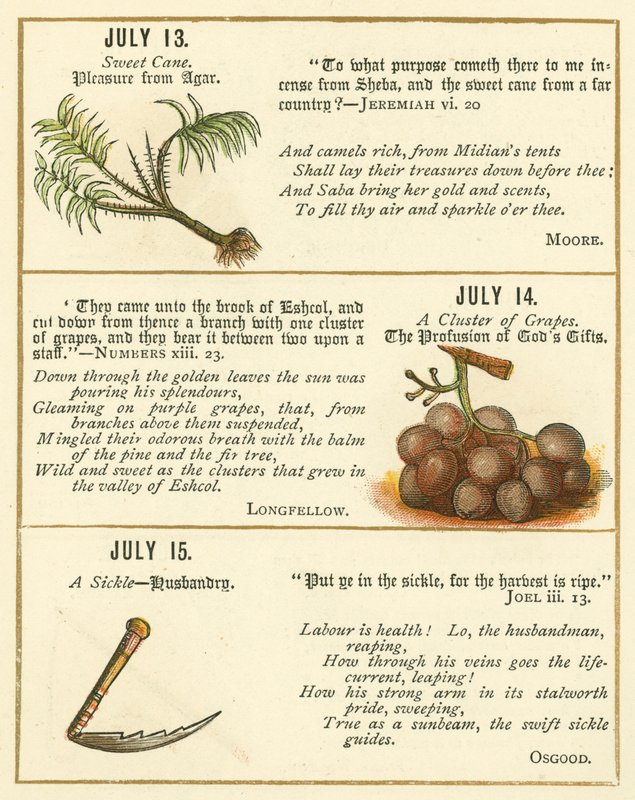 JULY 13.
Sweet Cane.
Pleasure from Agar.
"To what purpose cometh there to me in=
cense from Sheba, and the sweet cane from a far
country?—JEREMIAH vi. 20
And camels rich, from Midian's tents
Shall lay their treasures down before thee;
And Saba bring her gold and scents,
To fill thy air and sparkle o'er thee.
MOORE.
' They came unto the brook of Eshcol, and
cut down from thence a branch with one cluster
of grapes, and they bear it between two upon a
staff."—NUMBERS xiii. 23.
Down through the golden leaves the sun was
pouring his splendours,
Gleaming on purple grapes, that, from
branches above them suspended,
Mingled their odorous breath with the balm
of the pine and the fir tree,
Wild and sweet as the clusters that grew in
the valley of Eshcol.
LONGFELLOW.
JULY 14.
A Cluster of Grapes.
The Profusion of God's Gifts.
JULY 15.
A Sickle—Husbandry.
"Put ye in the sickle, for the harvest is ripe."
JOEL iii. 13.
Labour is health! Lo, the husbandman,
reaping,
How through his veins goes the life-
current, leaping!
How his strong arm in its stalworth
pride, sweeping,
True as a sunbeam, the swift sickle
guides.
OSGOOD.